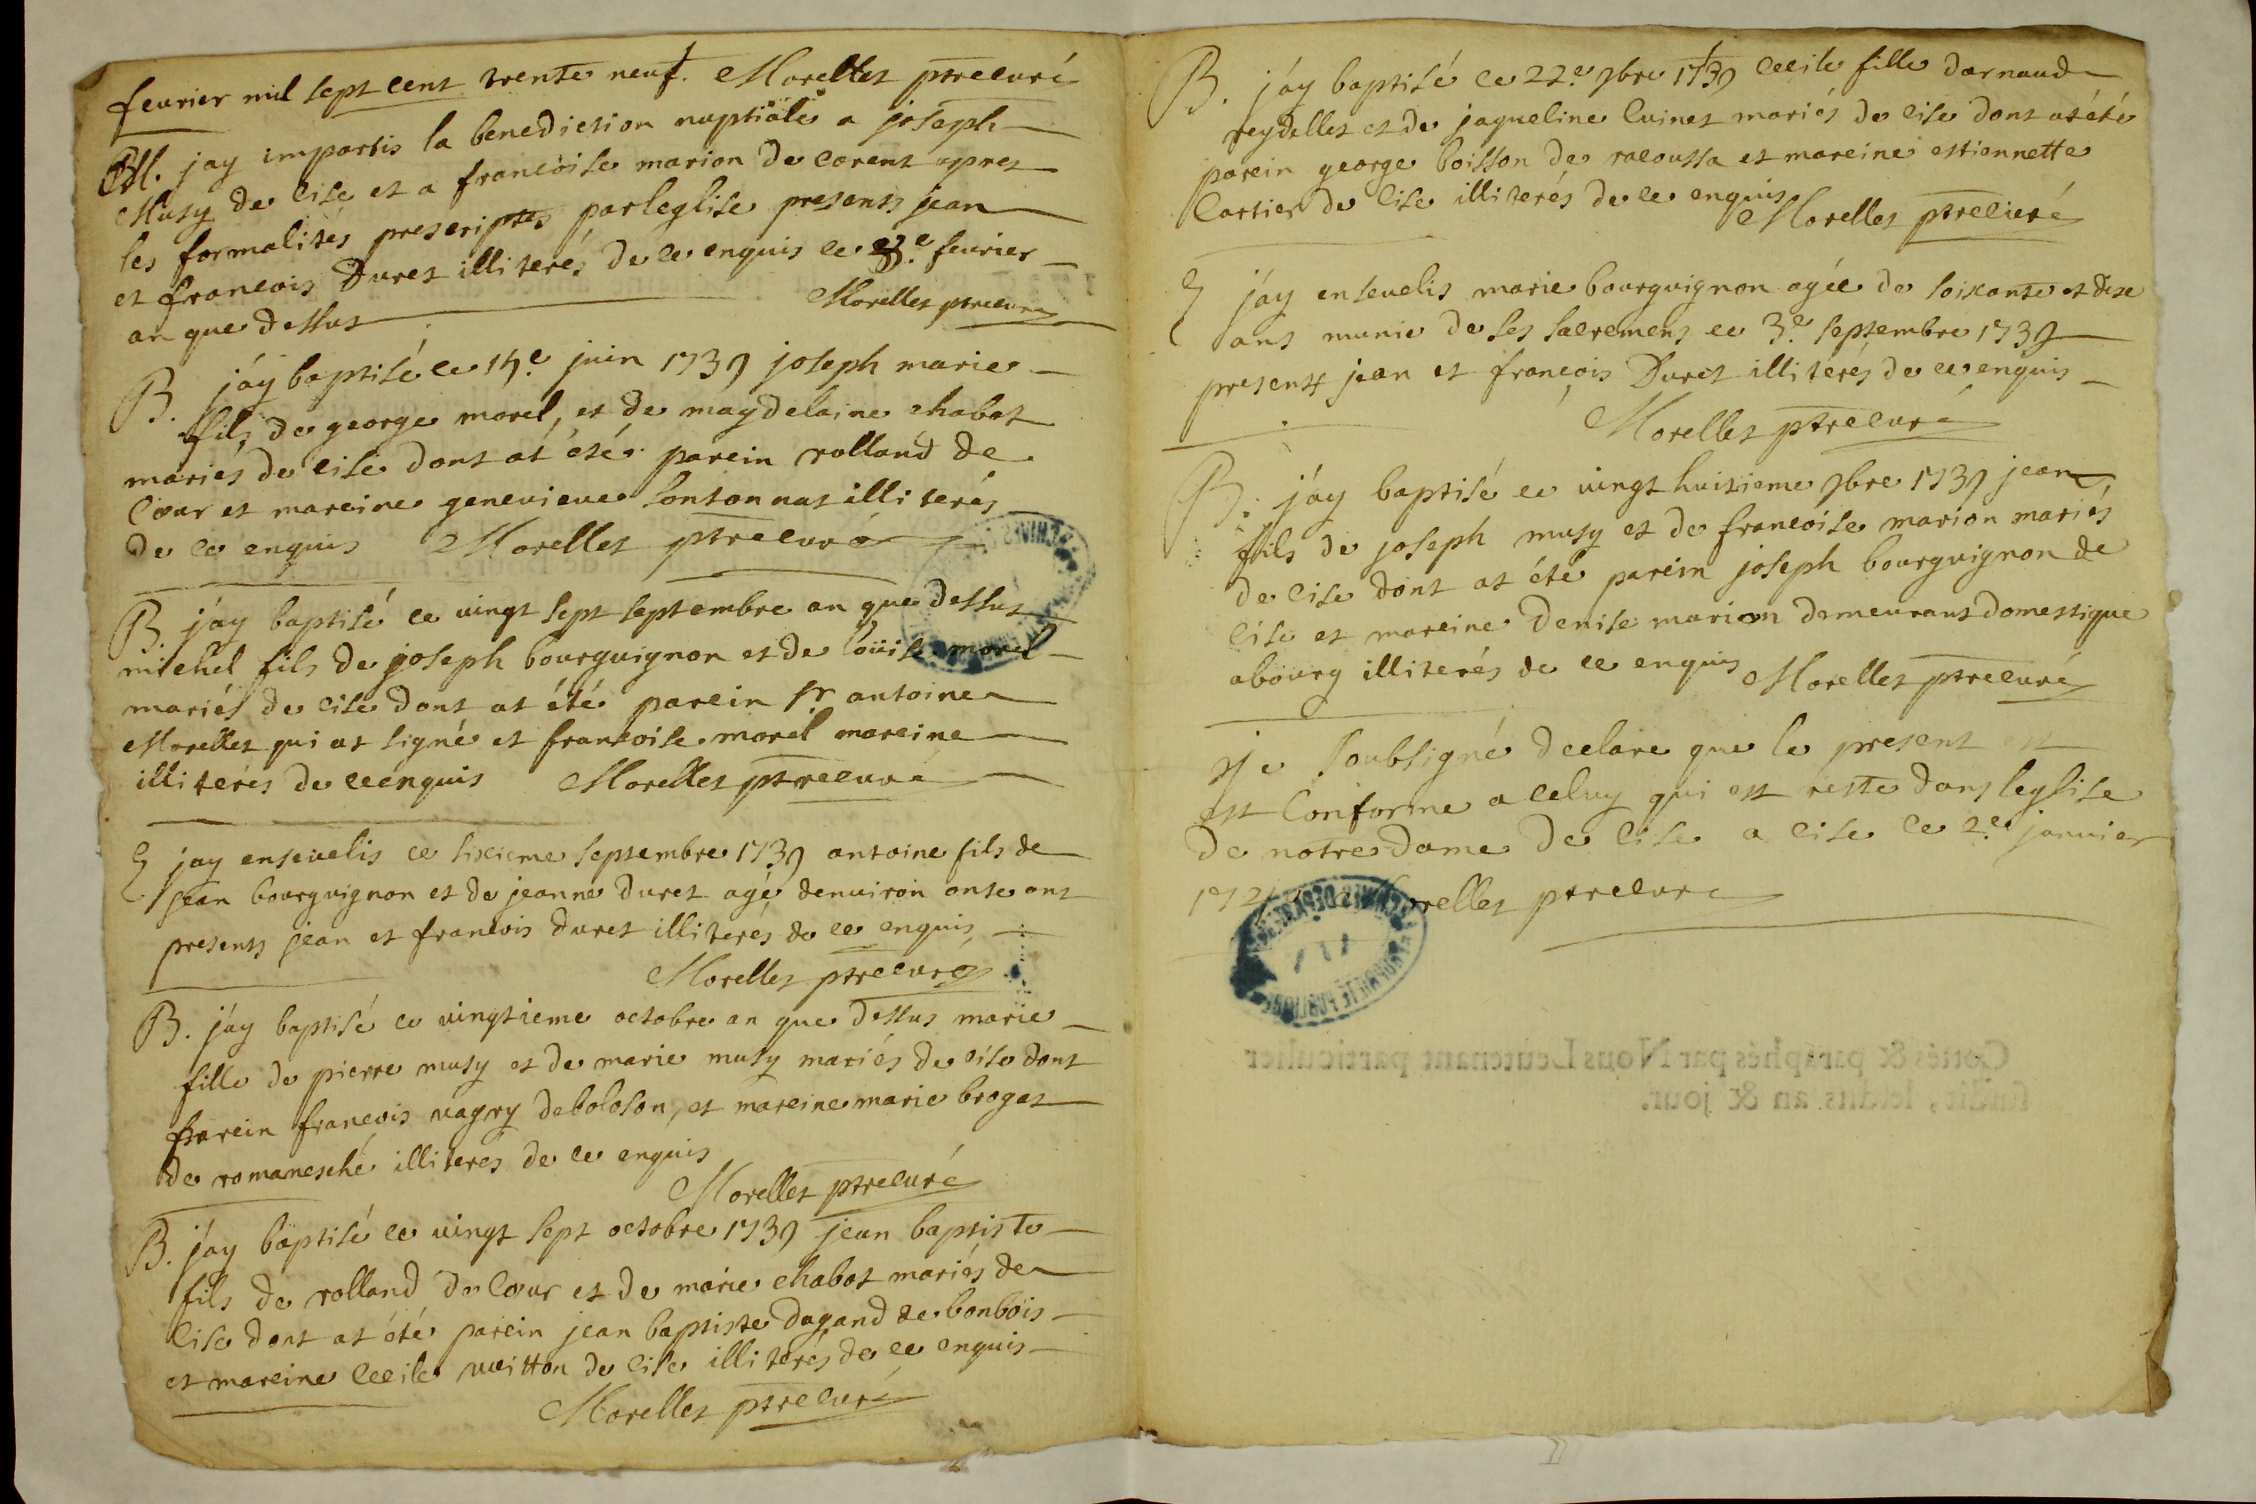 fevrier mil sept cent trente neuf. Morellet ptrecuré
M. jay impartis la benediction nuptiale a joseph
Musy de cise et a francoise marion de corent apres
les formalités prescriptes parleglise presents jean
et francois Duret illiterés de ce enquis ce 3.e fevrier
an que dessus Morellet ptrecuré
B. jáy baptisé ce 14.e juin 1739 joseph marie
fils de george morel, et de magdelaine chabot
mariés de cise dont at été parein rolland de
Cœur et mareine genevieve sontonnat illiterés
de ce enquis Morellet ptrecuré
B. jáy baptisé ce vingt sept septembre an que dessus
michel fils de joseph bourguignon et de loüise morel
mariés de cise dont at été parein sr antoine
Morellet qui at signé et francoise morel mareine
illiterés de ce enquis Morellet ptrecuré
E jay ensevelis ce sixieme septembre 1739 antoine fils de
jean bourguignon et de jeanne duret agé denviron onse ans
presents jean et francois duret illiterés de ce enquis
Morellet ptrecuré
B. jáy baptisé ce vingtieme octobre an que dessus marie
fille de pierre musy et de marie musy mariés de cise dont
parein francois vagry deboloson, et mareine marie brogat
de romanesche illiterés de ce enquis
Morellet ptrecuré
B. jáy baptisé ce vingt sept octobre 1739 jean baptiste
fils de rolland De Cœur et de marie chabot mariés de
cise dont at été parein jean baptiste dagand de bonbois
et mareine cecile vuitton de cise illiterés de ce enquis
Morellet ptrecuré
B. jáy baptisé ce 22.e 9bre 1739 cecile fille darnaud
reydellet et de jaqueline Cuinet mariés de cise dont at été
parein george boisson de racoussa et mareine estiennette
Cartier de cise illiterés de ce enquis
Morellet ptrecuré
E jáy ensevelis marie bourguignon agée de soixante et dixe
ans munie de ses sacremens ce 3.e septembre 1739
presents jean et francois Duret illiterés de ce enquis
Morellet ptrecuré
B. jáy baptisé ce vingt huitieme 9bre 1739 jean
fils de joseph musy et de francoise marion mariés
de cise dont at été parein joseph bourguignon de
cise et mareine Denise marion demeurant domestique
abourg illiterés de ce enquis Morellet ptrecuré
Je soubsigné declare que le present est
est Conforme a celuy qui est reste dans leglise
de notre dame de cise a cise ce 2.e janvier
Morellet ptrecuré
Cottés & paraphés par Nous Leutenant particulier
susdit, lesdits an & jour.